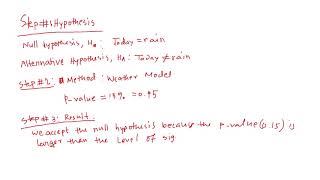 Step#1Hypothesis
Null hypothesis, H₀: Today = rain
Alternative Hypothesis, Hₐ: Today ≠ rain
Step#2: Method: Weather Model
P-value = 15% = 0.15
Step # 3: Result
We accept the null hypothesis because the p-value (0.15) is
larger than the level of sig